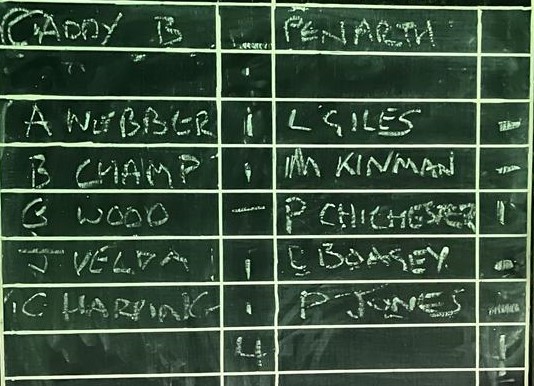 CADDY B PENARTH
A WEBBER 1 L GILES -
B CHAMP 1 M KINMAN -
G WOOD - P CHICHESTER 1
J VELDA 1 BOASEY -
C HARDING 1 P JONES -
4 1